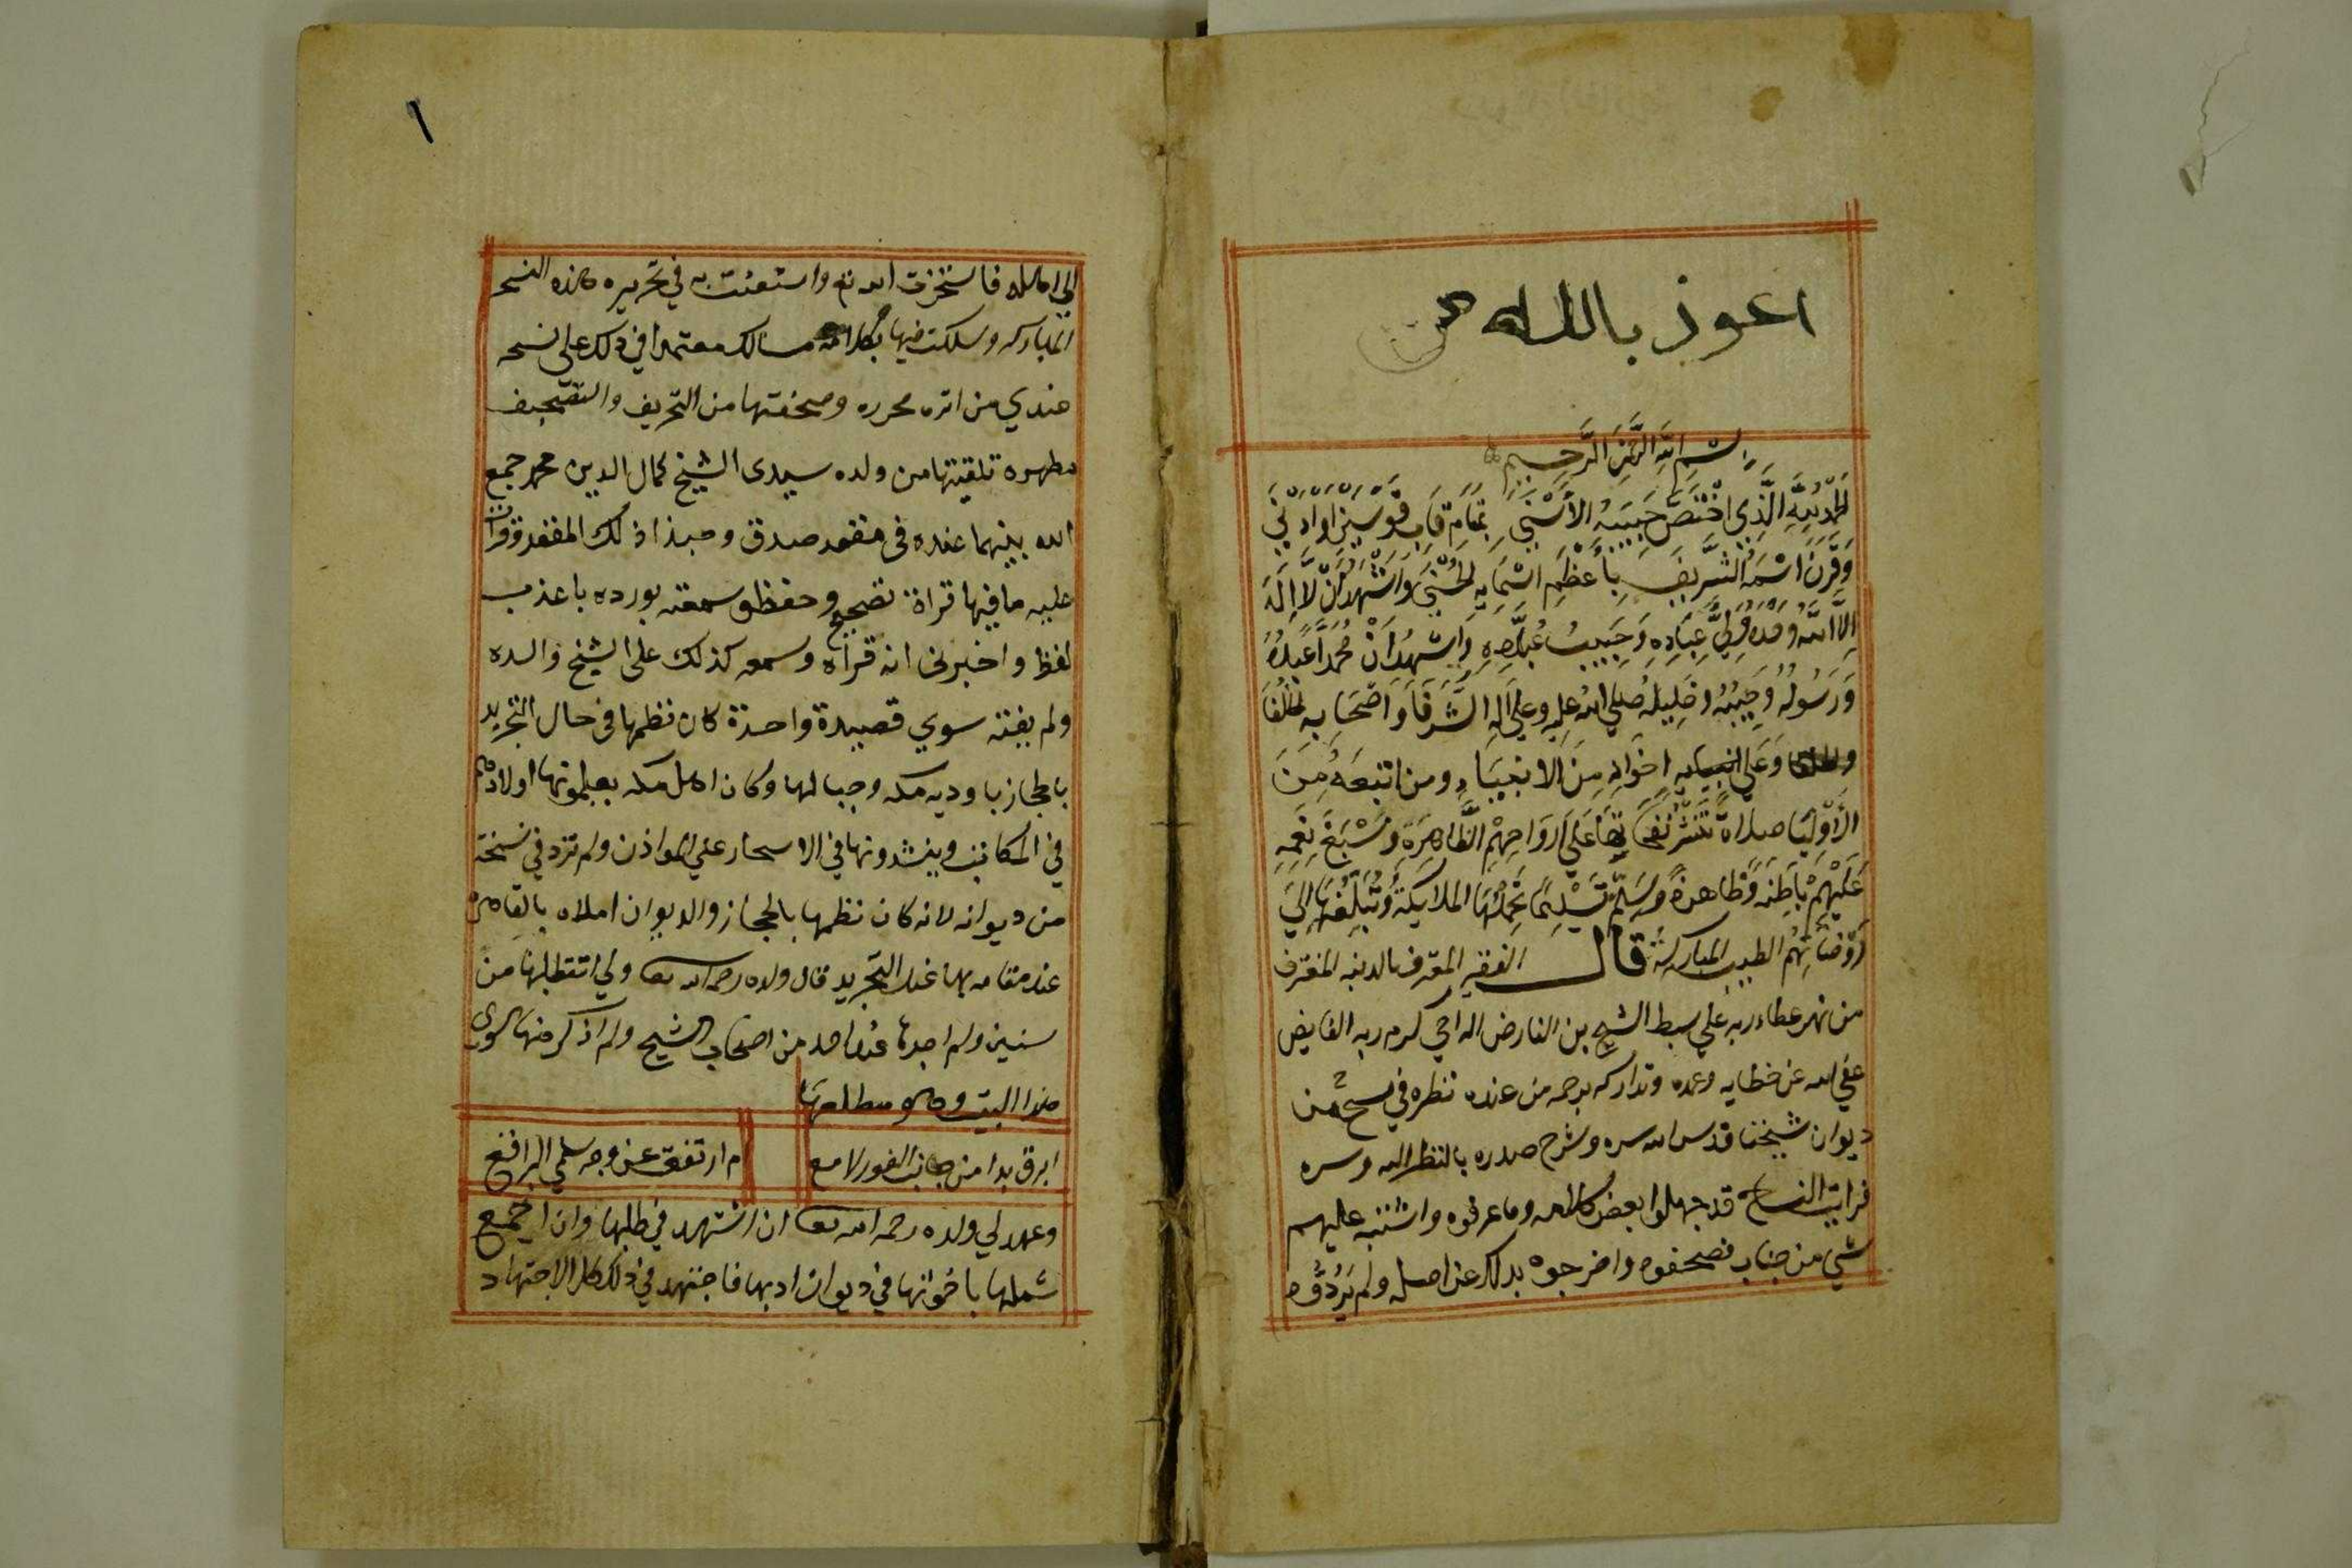 اعوذ بالله من
بسم الله الرحمن الرحيم
الحمد لله الذي اختص حبيبه الأسنى بمقام قاب قوسين او ادنى
وقرن اسمه الشريف بأعظم اسمايه الحسنى واشهد ان لا اله
الا الله وحده ولي عباده وحبيب عباده واشهد ان محمدا عبده
ورسوله وحبيبه وخليله صلى الله عليه وعلى اله الشرفا واصحابه الخلفا
وعلى اخوانه من الانبياء ومن اتبعه من
الأوليا صلاة على ارواحهم الظاهرة وسبغ نعمه
عليهم باطنة وظاهرة وسلم تسليما تحملها الملايكة وتبلغها إلى
روضاتهم الطيبة المباركة قال الفقير المعترف بالذنب المغترف
من نهر عطاء ربه علي سبط الشيخ بن الفارض الراجي كرم ربه الفايض
عفى الله عن خطايه وعمده وتداركه برحمه من عنده نظرة في نسخ من
ديوان شيخنا قدس الله سره وشرح صدره بالنظر اليه وسره
فرايت النساخ قد جهلوا بعض كلامه وما عرفوه واشتبه عليهم
شي من جناب فصحفوه واخرجوه بذلك عن اصله ولم يردوه
١
الى اهاله فاستخرت الله تع واستعنت به في تحريره هذه النسخ
المباركه وسلكت فيها مسالك معتمدا في ذلك على نسخه
عندي من اثره محرره وصحفتها من التحريف والتصحيف
مطهرة تلقيتها من ولده سيدى الشيخ كمال الدين محمد جمع
الله بينهما عنده في مقعد صدق وحبذا ذلك المقعد وقرات
عليه ما فيها قراة تصحيح وحفظ وسمعته يورده باعذب
لفظ واخبرنى انه قراه وسمعه كذلك على الشيخ والده
ولم يفته سوي قصيدة واحدة كان نظمها في حال التجريد
بالحجاز باوديه مكه وجبالها وكان اهل مكه يعلمونها اولادهم
في المكاتب وينشدونها في الاسحار على المواذن ولم ترد في نسخة
من ديوانه لانه كان نظمها بالحجاز والديوان املاه بالقاهرة
عند مقامه بها عند التجريد قال ولده رحمه الله تعا ولي اتطلبها من
سنين ولم اجدها عند احد من اصحاب الشيخ ولم اذكر منها سوى
هذا البيت وهو مطلعها
ابرق بدا من جانب الغور لامع
ام ارتفعت عن وجه سلمى البراقع
وعهد لي ولده رحمه الله تعا ان اشتهد في طلبها وان اجمع
شملها باخواتها في ديوان ادبها فاجتهد في ذلك كل الاجتهاد